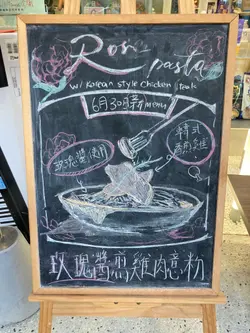 Rose
pasta
w/ Korean style chicken steak
6月30月新menu
韓式
煎雞
玫瑰醬使用
玫瑰醬煎雞肉意粉